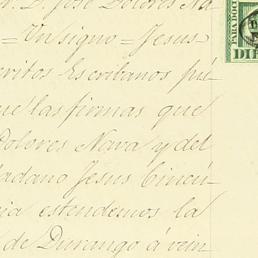 D. José Dolores Na
= Un signo = Jesus
critos Escribanos pú
ue las firmas que
Dolores Nava y del
dadano Jesus Cincú-
ia estendemos la
de Durango á vein
PARA DOCU
DIE